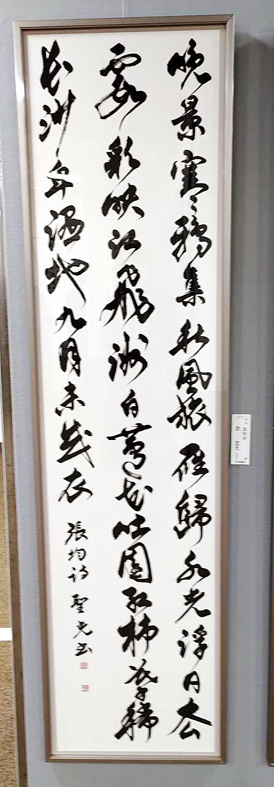 晚景寒鴉集秋風旅雁歸水光浮日去
霞彩映江飛洲白蘆花吐園紅柿葉稀
長沙卑濕地九月未成衣 張均詩 聖光書